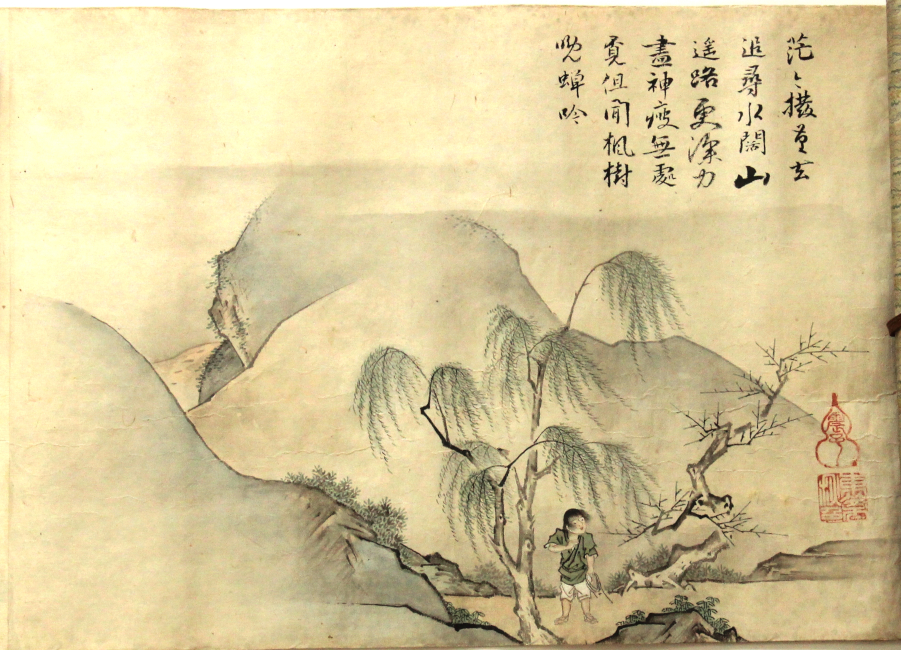 茫〻撥草去
追尋水闊山
遥路更深力
盡神疲無處
覓但聞楓樹
晩蟬吟